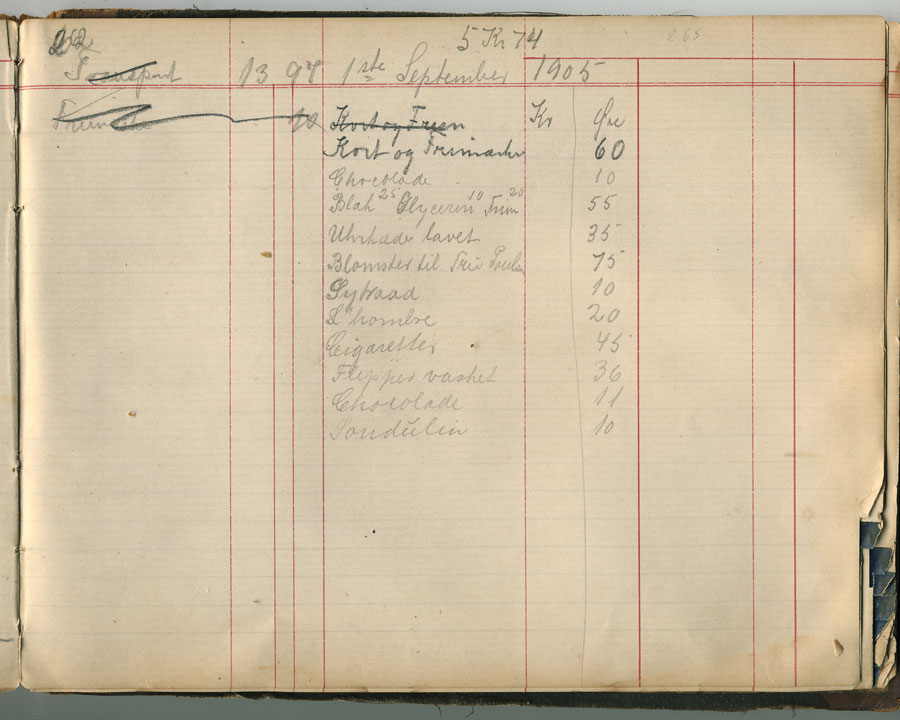 262 5 Kr 74 265
Transport 13 97 1ste September 1905
Kort og Frim Kr Øre
Kort og Frimærker 60
Chocolade 10
Blæk 25 Glycerin 10 Frim 20 55
Uhrkæde lavet 35
Blomster til 75
Sytraad 10
L'hombre 20
Cigaretter 45
Flipper vasket 36
Chocolade 11
10